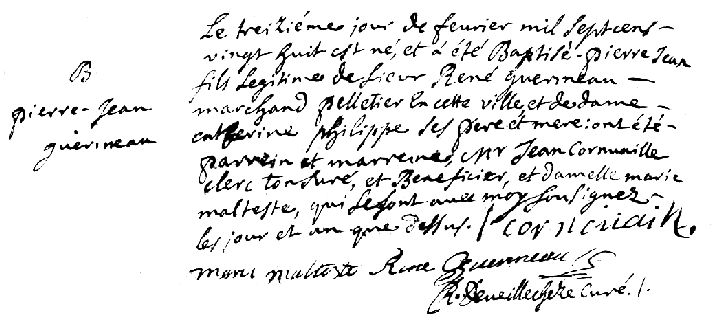 B
pierre-Jean
guerineau
Le treiziéme jour de feurier mil Septcens-
vingt huit est né, et à été Baptisé-pierre Jean
fils Legitime de Sieur René guerineau —
marchand pelletier En cette ville, et de dame-
catherine philippe ses pere et mere: ont été-
parrein et marreine, Mr Jean Cornuaille
clerc tonsuré, et Beneficier, et damelle marie
malteste, qui Se sont avec moy Sousignez-
les jour et an que dessus.
marie malteste René Guerineau
curé.